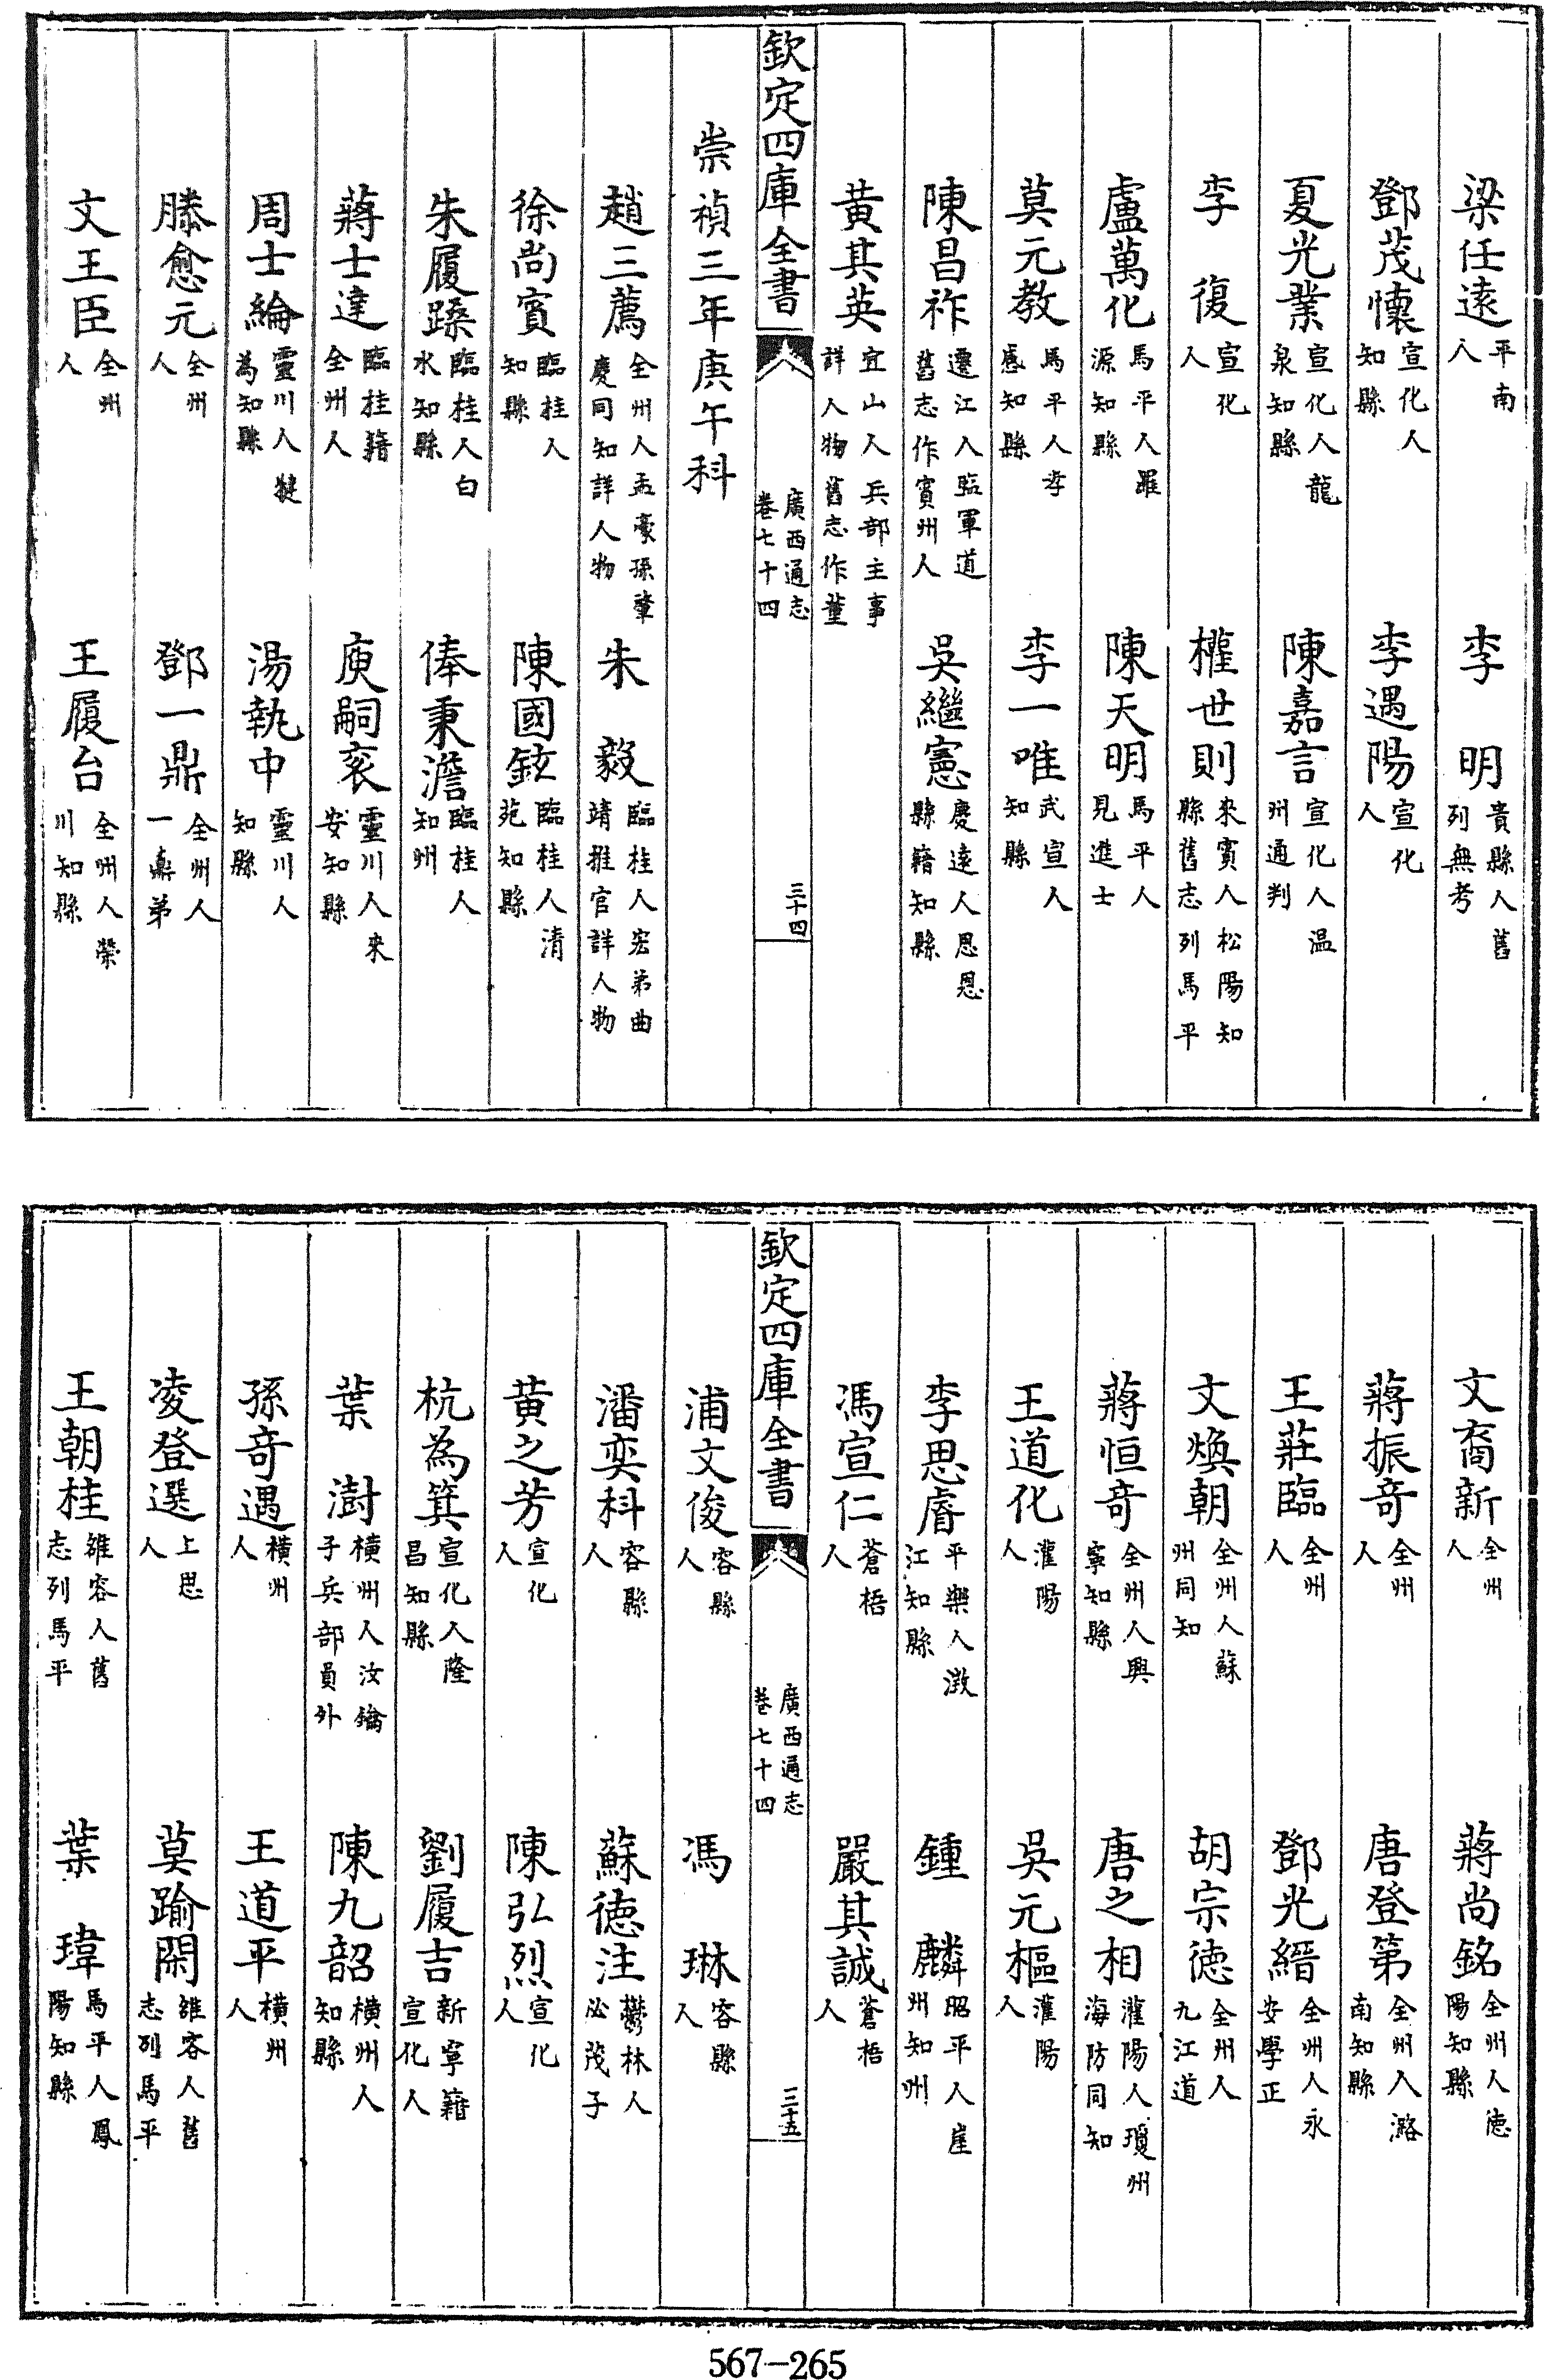 梁任遠平南人　李明貴縣人舊列無考
鄧茂懷宣化人知縣　李遇陽宣化人
夏光業宣化人龍泉知縣　陳嘉言宣化人温州通判
李復宣化人　權世則來賓人松陽知縣舊志列馬平
盧萬化馬平人羅源知縣　陳天明馬平人見進士
莫元教馬平人孝感知縣　李一唯武宣人知縣
陳昌祚遷江人監軍道舊志作賓州人　吳繼憲慶遠人恩恩縣籍知縣
黄其英宜山人兵部主事詳人物舊志作董
欽定四庫全書　廣西通志卷七十四　三十四
崇禎三年庚午科
趙三薦全州人孟豪孫肇慶同知詳人物　朱毅臨桂人宏弟曲靖推官詳人物
徐尚賓臨桂人知縣　陳國鉉臨桂人清苑知縣
朱履𨅖臨桂人白水知縣　俸秉澹臨桂人知州
蔣士達臨桂籍全州人　庾嗣衮靈川人來安知縣
周士綸靈川人犍為知縣　湯執中靈川人知縣
滕愈元全州人　鄧一鼎全州人一鼐弟
文王臣全州人　王履台全州人榮川知縣
文裔新全州人　蔣尚銘全州人徳陽知縣
蔣振竒全州人　唐登第全州人潞南知縣
王莊臨全州人　鄧光縉全州人永安學正
文煥朝全州人蘇州同知　胡宗徳全州人九江道
蔣恒竒全州人興寧知縣　唐之相灌陽人瓊州海防同知
王道化灌陽人　吳元樞灌陽人
李思睿平樂人澂江知縣　鍾麟昭平人崖州知州
馮宣仁蒼梧人　嚴其誠蒼梧人
欽定四庫全書　廣西通志卷七十四　三十五
浦文俊容縣人　馮琳容縣人
潘奕科容縣人　蘇徳注鬱林人必茂子
黄之芳宣化人　陳弘烈宣化人
杭為箕宣化人隆昌知縣　劉履吉新寧籍宣化人
葉澍横州人汝鑰子兵部員外　陳九韶横州人知縣
孫竒遇横州人　王道平横州人
凌登選上思人　莫踰閑雒容人舊志列馬平
王朝桂雒容人舊志列馬平　葉瑋馬平人鳳陽知縣
567-265